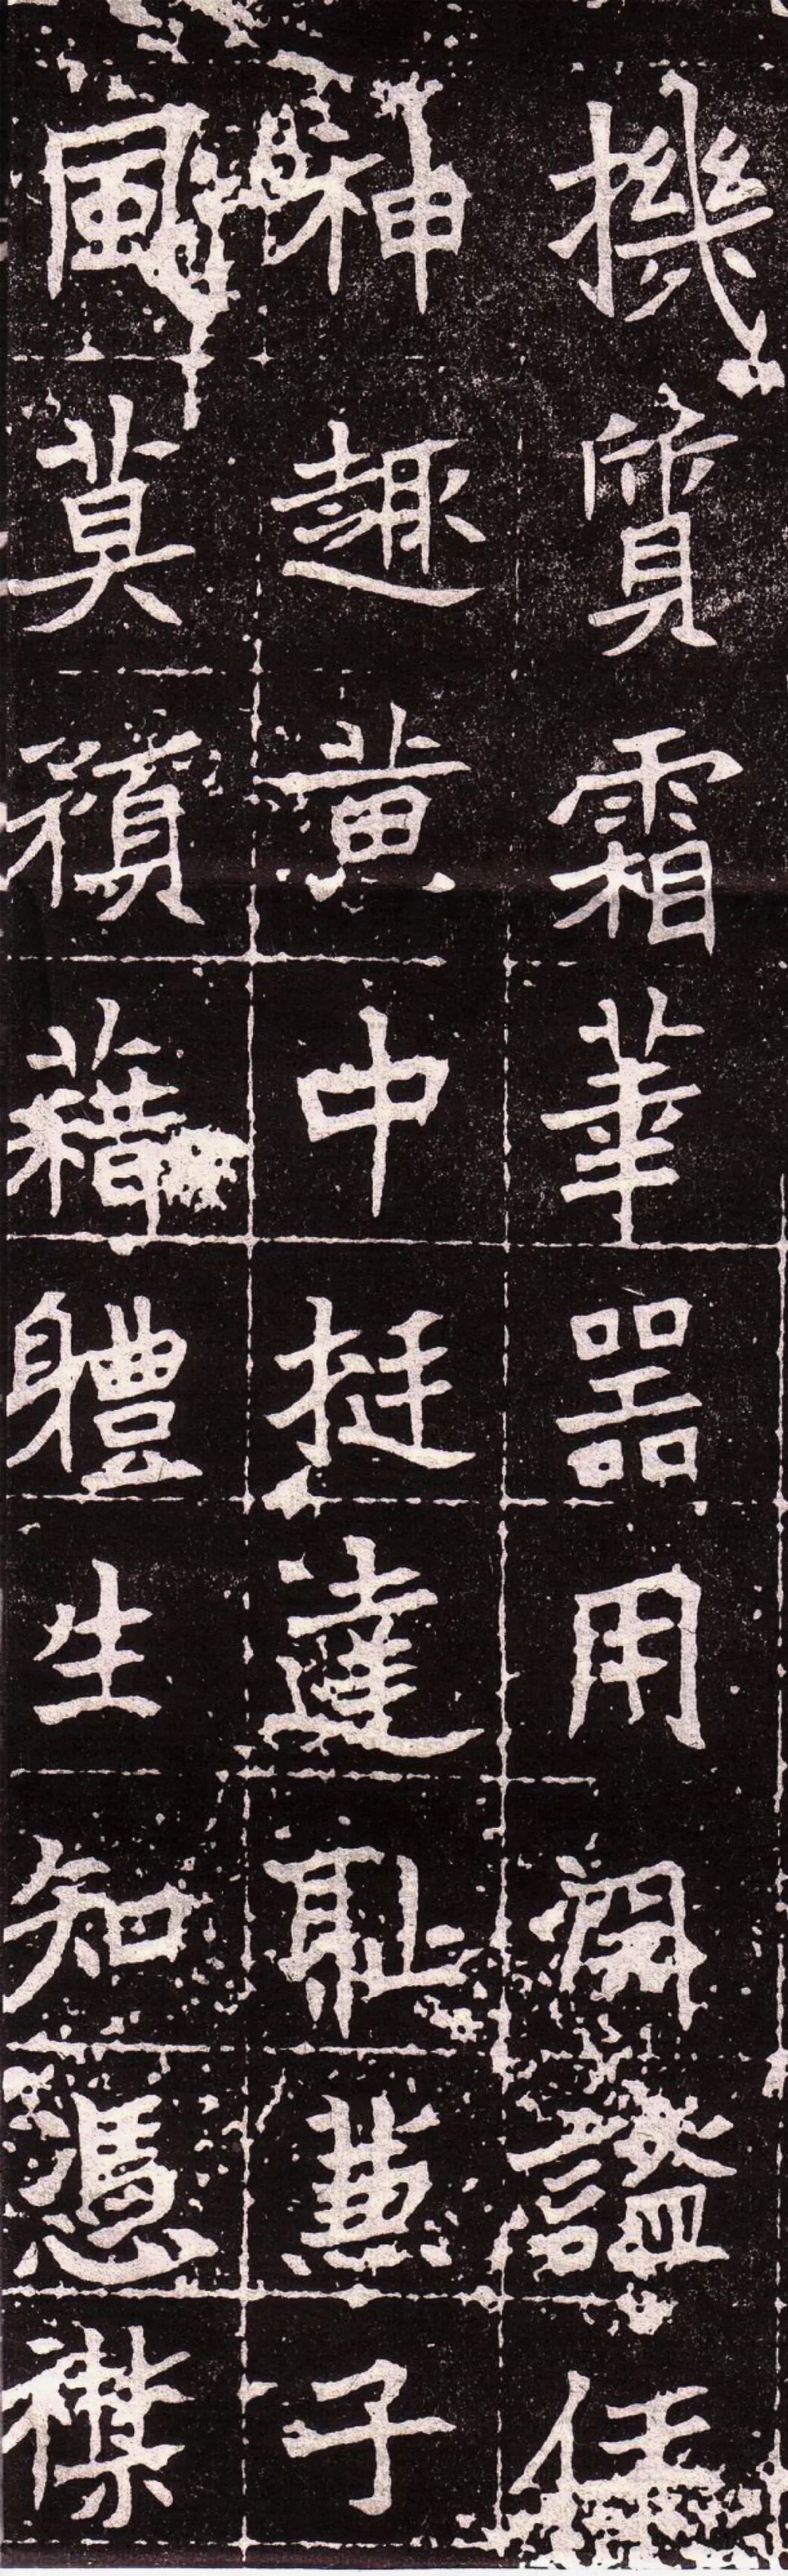 機質霜華器用開謐任
神趣黄中挺達恥蕙子
風莫積藉體生知憑襟